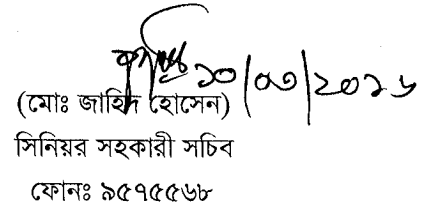 ১০/০৩/২০১৬
(মোঃ জাহিদ হোসেন)
সিনিয়র সহকারী সচিব
ফোনঃ ৯৫৭৫৫৬৮